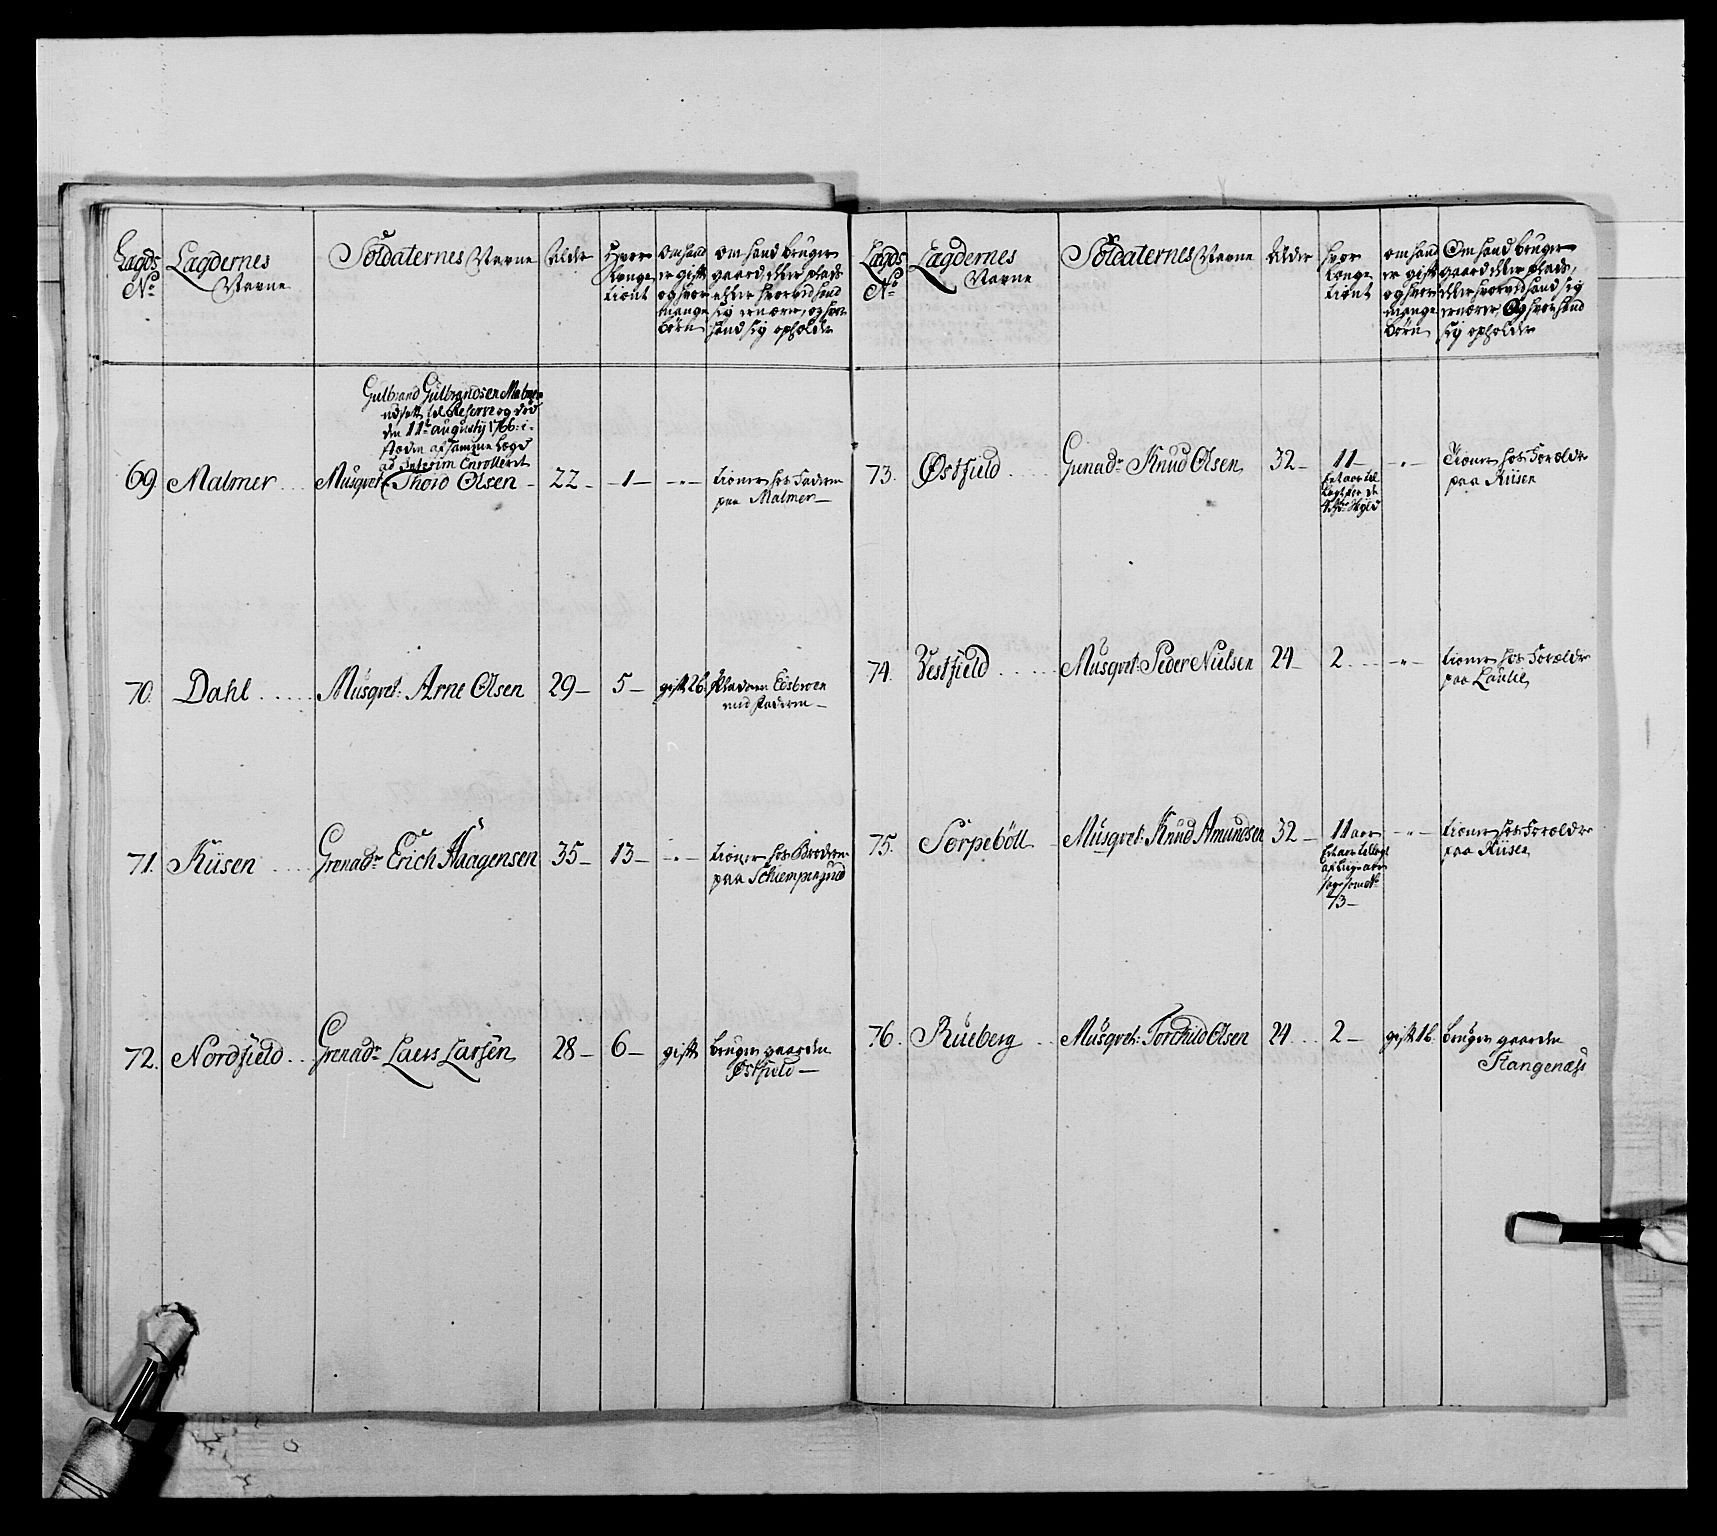 Lagds No
Lagdernes Navne
Soldaternes Navne
Alder
Hvor længe tient
Om hand er gift og hvor mange børn
Om hand bruger gaard eller plads eller hvorved hand sig ernærer, og hvor hand sig opholder
69. Malmer
Gulbrand Gulbrandsen Malmer
udsatt til Reserven og død
den 11te augustij 1766: i
stæden af samme Lægd
ad interim Enrolleret
Musqvet: Thord Olsen - 22 - 1 - - " - tiener hos Faderen
paa Malmer
70. Dahl Musqvet: Arne Olsen 29 - 5 - gift 2b.
med Faderen
71. Riisen Grenadr Erich Haagensen 35 - 13 - - " - tiener hos Broderen
paa
72. Nordfield Grenadr Laers Larsen 28 - 6 - gift bruger gaarden
Østfield
Lagds No
Lagdernes Navne
Soldaternes Navne
Alder
hvor længe tient
om hand er gift og hvor mange børn
Om hand bruger gaard eller plads, eller hvorved hand sig ernærer, Og hvor hand sig opholder
73. Østfield Grenadr Knud Olsen 32 - 11 - - " - Tiener hos Forældre
paa Riisen
74. Vestfield Musqvet: Peder Nielsen 24 - 2 - " - tiener hos Forældre
paa
75. Sørpebøll Musqvet: Knud Amundsen 32 - 11 aar - " - tiener hos Forældre
paa Riisen
73
76. Rueberg Musqvet: Torchild Olsen 24 2 - gift 1b. bruger gaarden
Stangenæss